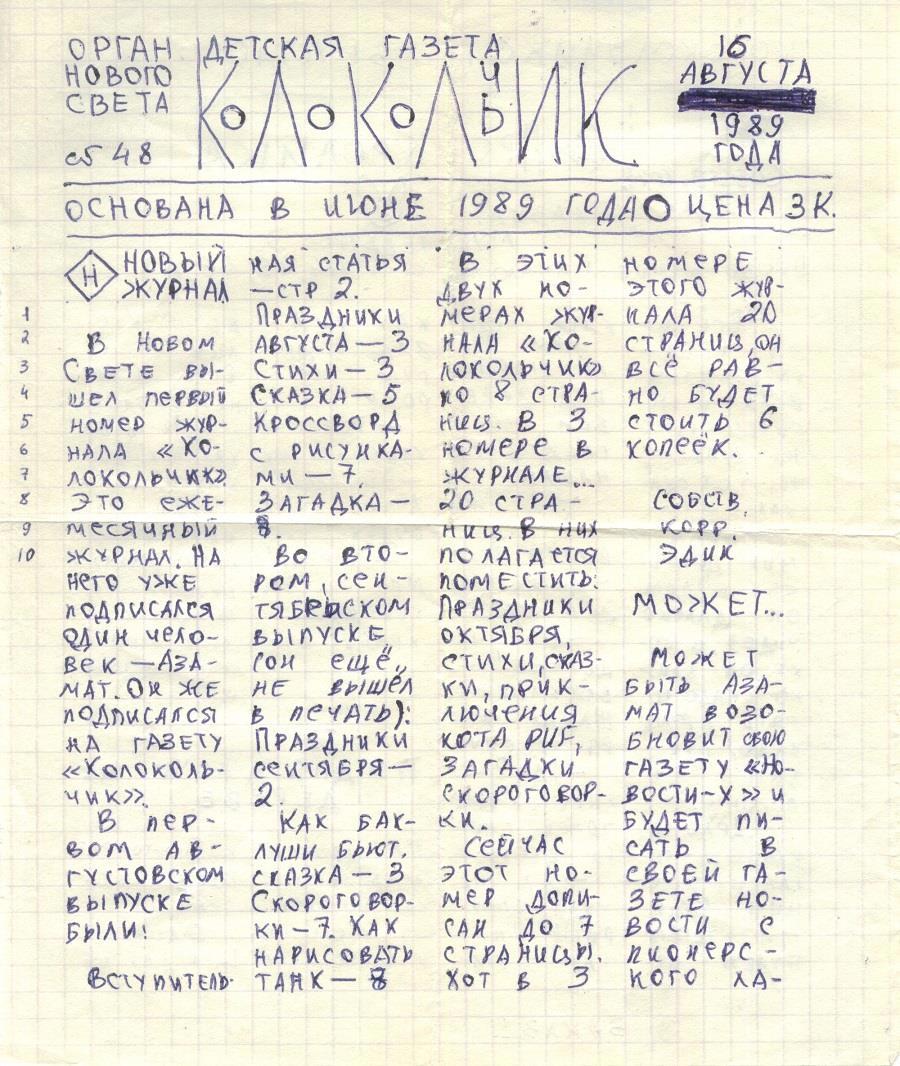 ОРГАН
НОВОГО
СВЕТА
сб 48
ДЕТСКАЯ ГАЗЕТА
КОЛОКОЛЬЧИК
16
АВГУСТА
1989
ГОДА
ОСНОВАНА В ИЮНЕ 1989 ГОДА О ЦЕНА 3 К.
Н НОВЫЙ
ЖУРНАЛ
1
2 В НОВОМ
3 СВЕТЕ ВЫ-
4 ШЕЛ ПЕРВЫЙ
5 НОМЕР ЖУР-
6 НАЛА «КО-
7 ЛОКОЛЬЧИК».
8 ЭТО ЕЖЕ-
9 МЕСЯЧНЫЙ
10 ЖУРНАЛ. НА
НЕГО УЖЕ
ПОДПИСАЛСЯ
ОДИН ЧЕЛО-
ВЕК — АЗА-
МАТ. ОН ЖЕ
ПОДПИСАЛСЯ
НА ГАЗЕТУ
«КОЛОКОЛЬ-
ЧИК».
В ПЕР-
ВОМ АВ-
ГУСТОВСКОМ
ВЫПУСКЕ
БЫЛИ:
ВСТУПИТЕЛЬ-
НАЯ СТАТЬЯ
—СТР 2.
ПРАЗДНИКИ
АВГУСТА — 3
СТИХИ — 3
СКАЗКА — 5
КРОССВОРД
С РИСУНКА-
МИ — 7.
ЗАГАДКА —
8.
ВО ВТО-
РОМ, СЕН-
ТЯБРЬСКОМ
ВЫПУСКЕ
(ОН ЕЩЁ
НЕ ВЫШЕЛ
В ПЕЧАТЬ):
ПРАЗДНИКИ
СЕНТЯБРЯ —
2.
КАК БАК-
ЛУШИ БЬЮТ.
СКАЗКА — 3
СКОРОГОВОР-
КИ — 7. КАК
НАРИСОВАТЬ
ТАНК — 8
В ЭТИХ
ДВУХ НО-
МЕРАХ ЖУР-
НАЛА «КО-
ЛОКОЛЬЧИК»
ПО 8 СТРА-
НИЦ. В 3
НОМЕРЕ В
ЖУРНАЛЕ...
20 СТРА-
НИЦ. В НИХ
ПОЛАГАЕТСЯ
ПОМЕСТИТЬ:
ПРАЗДНИКИ
ОКТЯБРЯ,
СТИХИ, СКАЗ-
КИ, ПРИК-
ЛЮЧЕНИЯ
КОТА PUF,
ЗАГАДКИ
СКОРОГОВОР-
КИ.
СЕЙЧАС
ЭТОТ НО-
МЕР ДОПИ-
САН ДО 7
СТРАНИЦЫ.
ХОТ В 3
НОМЕРЕ
ЭТОГО ЖУР-
НАЛА 20
СТРАНИЦ, ОН
ВСЁ РАВ-
НО БУДЕТ
СТОИТЬ 6
КОПЕЕК.
СОБСТВ.
КОРР.
ЭДИК
МОЖЕТ...
МОЖЕТ
БЫТЬ АЗА-
МАТ ВОЗО-
БНОВИТ СВОЮ
ГАЗЕТУ «НО-
ВОСТИ-Х» И
БУДЕТ ПИ-
САТЬ В
СВОЕЙ ГА-
ЗЕТЕ НО-
ВОСТИ С
ПИОНЕРС-
КОГО ЛА-